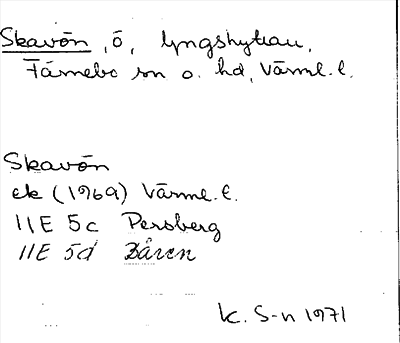 Skavön, ö, Lyngshyttan,
Färnebo sn o. hd, Värml. l.
Skavön
ek (1969) Värml. l.
11E 5c Persberg
11E 5d Båven
K. S-n 1971